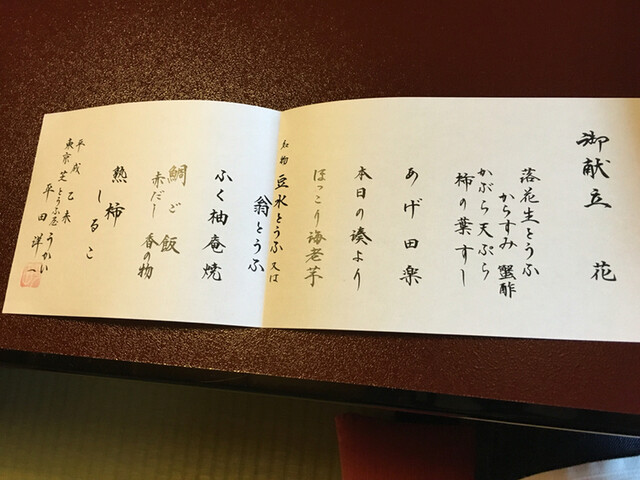 御献立 花
落花生とうふ
からすみ 蟹酢
かぶら天ぷら
柿の葉すし
あげ田楽
本日の湊より
ほっこり海老芋
名物 豆水とうふ 又は
翁とうふ
ふく柚庵焼
鯛ご飯
赤だし 香の物
熟柿
しるこ
平成乙未
東京芝とうふ屋うかい
平田洋一